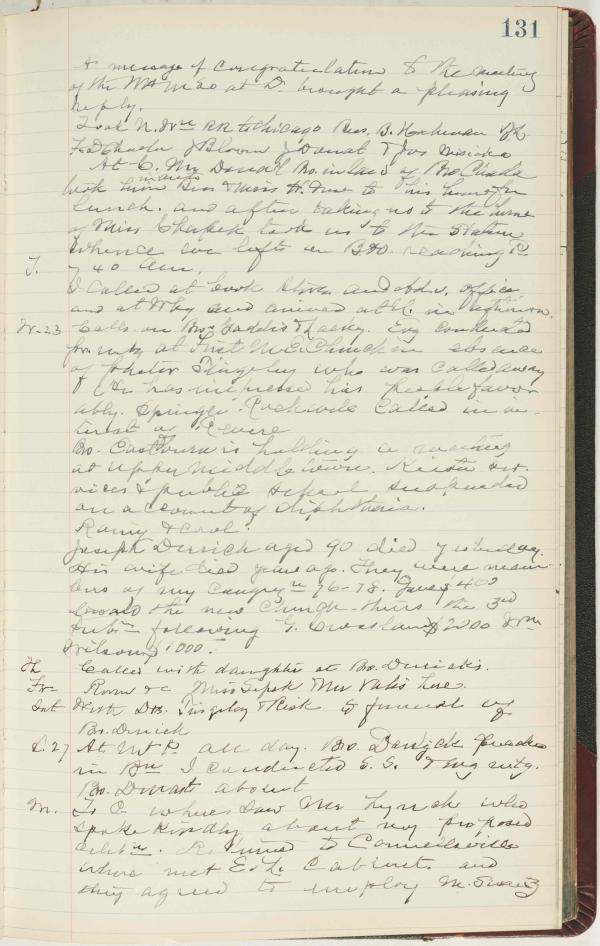 131
A message of Congratulation to the meeting
of the at D. brought a pleasing
reply.
Took N. RR to Chicago Bros. B.
& Bloom
At C. Mr Bro. in law of Bro.
took him Miss to his home for
lunch. and after taking us to the home
of Miss Chapek took us to the Station
whence we left on B&O. reaching C.
T. 7 40 am.
I called at book store and adv. office
and at and arrived at U. in afternoon.
W-23 Calls on Bros Gaddis & Lacky. Evg Conducted
pr. mtg at First M E. Church in absence
of Pastor Tingley who was called away
He has impressed his people favor
ably. Springer Rockwell called in in-
terest of Revere
Bro. Eastburn is holding a meeting
at upper Middletown. Ser-
vices & public school suspended
on account of diphtheria.
Rainy & Cool.
Joseph Derrick aged 90 died yesterday.
His wife died years ago. They were mem-
bers of my Congregn 76-78. Gave $400
toward the new Church - theirs the 3rd
subn following G. Crossland $2200 & Wm
Wilson $1000.
Th Called with daughter at Bro. Derrick's.
Fr- Room &c Miss Sipek & Mr here.
Sat With Drs. Tingley & to funeral of
Bro. Derrick
S. 27 At Mt P. all day. Bro. preaches
in Bn I conducted S. S. & evg mtg.
Bro. absent
M. To C. where saw Mr Lynch who
spoke kindly about my proposed
. Returned to Connellsville
where met Cabinet and
they agreed to employ M.